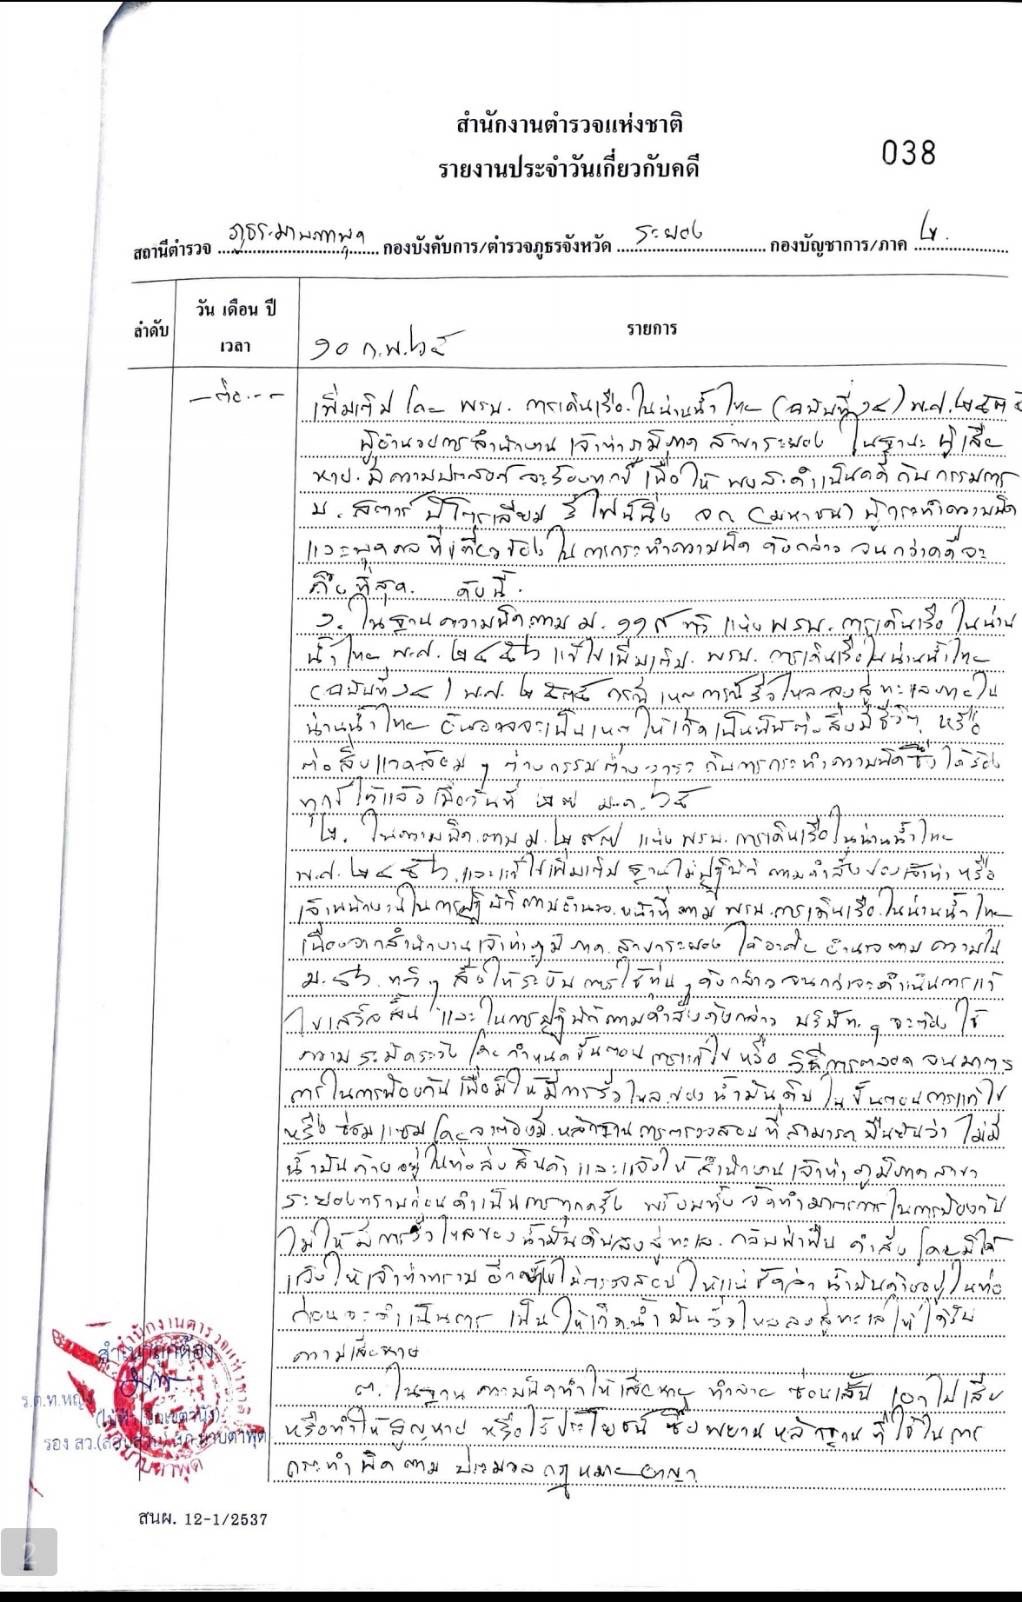 สำนักงานตำรวจแห่งชาติ
รายงานประจำวันเกี่ยวกับคดี
038
สถานีตำรวจ ภูธรมาบตาพุด กองบังคับการ/ตำรวจภูธรจังหวัด ระยอง กองบัญชาการ/ภาค ๒.
ลำดับ
วัน เดือน ปี
เวลา
รายการ
๑๐ ก.พ. ๖๕
-ต่อ--
เพิ่มเติม โดย พรบ. การเดินเรือในน่านน้ำไทย (ฉบับที่ ๑๔) พ.ศ. ๒๕๓๕
ผู้อำนวยการสำนักงานเจ้าท่าภูมิภาค สาขาระยอง ในฐานะ ผู้เสีย
หาย มีความประสงค์จะร้องทุกข์ เพื่อให้ พงส.ดำเนินคดี กับ กรรมการ
บ. สตาร์ ปิโตรเลียม รีไฟน์นิ่ง จก (มหาชน) ผู้กระทำความผิด
และบุคคล ที่เกี่ยวข้อง ในการกระทำความผิด ดังกล่าว จนกว่าคดีจะ
ถึงที่สุด. ดังนี้.
๑. ในฐานความผิดตาม ม. ๑๑๙ ทวิ แห่ง พรบ. การเดินเรือในน่าน
น้ำไทย พ.ศ. ๒๔๕๖ แก้ไขเพิ่มเติม พรบ. การเดินเรือในน่านน้ำไทย
(ฉบับที่ ๑๔) พ.ศ. ๒๕๓๕ กรณี เหตุการณ์ รั่วไหลลงสู่ทะเลภายใน
น่านน้ำไทย อันอาจจะเป็นเหตุ ให้เกิดเป็นพิษต่อสิ่งมีชีวิต หรือ
ต่อสิ่งแวดล้อม ๆ ต่างกรรมต่างวาระ กับการกระทำความผิดซึ่งได้ร้อง
ทุกข์ไว้แล้วเมื่อวันที่ ๒๗ ม.ค. ๖๕
๒. ในความผิดตาม ม. ๒๙๗ แห่ง พรบ. การเดินเรือในน่านน้ำไทย
พ.ศ. ๒๔๕๖ และแก้ไขเพิ่มเติม ฐานไม่ปฏิบัติ ตามคำสั่งของเจ้าท่า หรือ
เจ้าพนักงานในการปฏิบัติตามอำนาจหน้าที่ตาม พรบ. การเดินเรือในน่านน้ำไทย
เนื่องจากสำนักงานเจ้าท่าภูมิภาค สาขาระยอง ได้อาศัย อำนาจตาม ความใน
ม. ๕๖ ทวิ ๆ สั่งให้ระงับ การใช้ทุ่น ๆ ดังกล่าว จนกว่าจะดำเนินการแก้
ไขเสร็จสิ้น และในการปฏิบัติตามคำสั่งดังกล่าว บริษัท ๆ จะต้องใช้
ความระมัดระวัง โดยกำหนดขั้นตอน การแก้ไข หรือ วิธีการตลอดจนมาตร
การในการป้องกัน เพื่อมิให้มีการรั่วไหลของน้ำมันดิบ ในขั้นตอนการแก้ไข
หรือ ซ่อมแซม โดยจะต้องมีหลักฐาน การตรวจสอบที่สามารถยืนยันว่า ไม่มี
น้ำมันค้างอยู่ในท่อส่งสินค้า และแจ้งให้ สำนักงานเจ้าท่าภูมิภาคสาขา
ระยองทราบก่อนดำเนินการทุกครั้ง พร้อมทั้ง จัดทำมาตรการในการป้องกัน
ไม่ให้มีการรั่วไหลของน้ำมันดิบลงสู่ทะเล กลับฝ่าฝืน คำสั่ง โดยมิได้
แจ้งให้เจ้าท่าทราบ อีกทั้งไม่ตรวจสอบให้แน่ชัดว่า น้ำมันค้างอยู่ในท่อ
ก่อนจะดำเนินการ เป็นให้เกิดน้ำมันรั่วไหลลงสู่ทะเลให้ได้รับ
ความเสียหาย
๓. ในฐาน ความผิดทำให้เสียหาย ทำลาย ซ่อนเร้น เอาไปเสีย
หรือทำให้สูญหาย หรือไร้ประโยชน์ ซึ่งพยานหลักฐานที่ใช้ในการ
กระทำผิดตาม ประมวลกฎหมายอาญา
สำเนาถูกต้อง
ร.ต.ท.หญิง
รอง สว.(สอบสวน) สภ.มาบตาพุด
สนผ. 12-1/2537
2